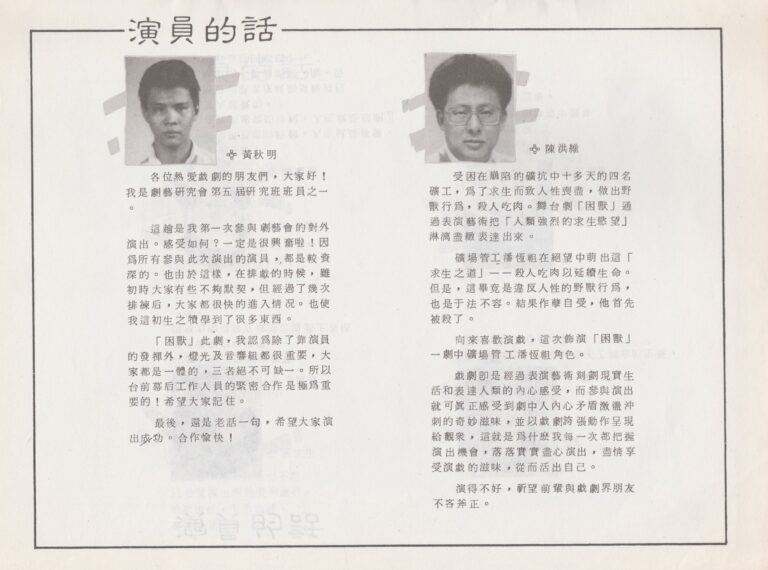 演員的話
黃秋明
各位熱愛戲劇的朋友們，大家好！
我是劇藝研究會第五屆研究班班員之一
。
這趟是我第一次參與劇藝會的對外
演出。感受如何？一定是很興奮啦！因
爲所有參與此次演出的演員，都是較資
深的。也由於這樣，在排戲的時候，雖
初時大家有些不夠默契，但經過了幾次
排練后，大家都很快的進入情况。也使
我這初生之犢學到了很多東西。
「困獸」此劇，我認爲除了靠演員
的發揮外，燈光及音響組都很重要，大
家都是一體的，三者絕不可缺一。所以
台前幕后工作人員的緊密合作是極爲重
要的！希望大家記住。
最後，還是老話一句，希望大家演
出成功。合作愉快！
陳洪維
受困在崩陷的礦坑中十多天的四名
礦工，爲了求生而致人性喪盡，做出野
獸行爲，殺人吃肉。舞台劇「困獸」通
過表演藝術把「人類強烈的求生慾望」
淋漓盡緻表達出來。
礦場管工潘恆祖在絕望中萌出這「
求生之道」——殺人吃肉以延續生命。
但是，這畢竟是違反人性的野獸行爲，
也是于法不容。結果作孽自受，他首先
被殺了。
向來喜歡演戲，這次飾演「困獸」
一劇中礦場管工潘恆祖角色。
戲劇卽是經過表演藝術刻劃現實生
活和表達人類的內心感受，而參與演出
就可眞正感受到劇中人內心矛盾激盪冲
刺的奇妙滋味，並以戲劇跨張動作呈現
給觀衆，這就是爲什麽我每一次都把握
演出機會，落落實實盡心演出，盡情享
受演戲的滋味，從而活出自己。
演得不好，祈望前輩與戲劇界朋友
不吝斧正。